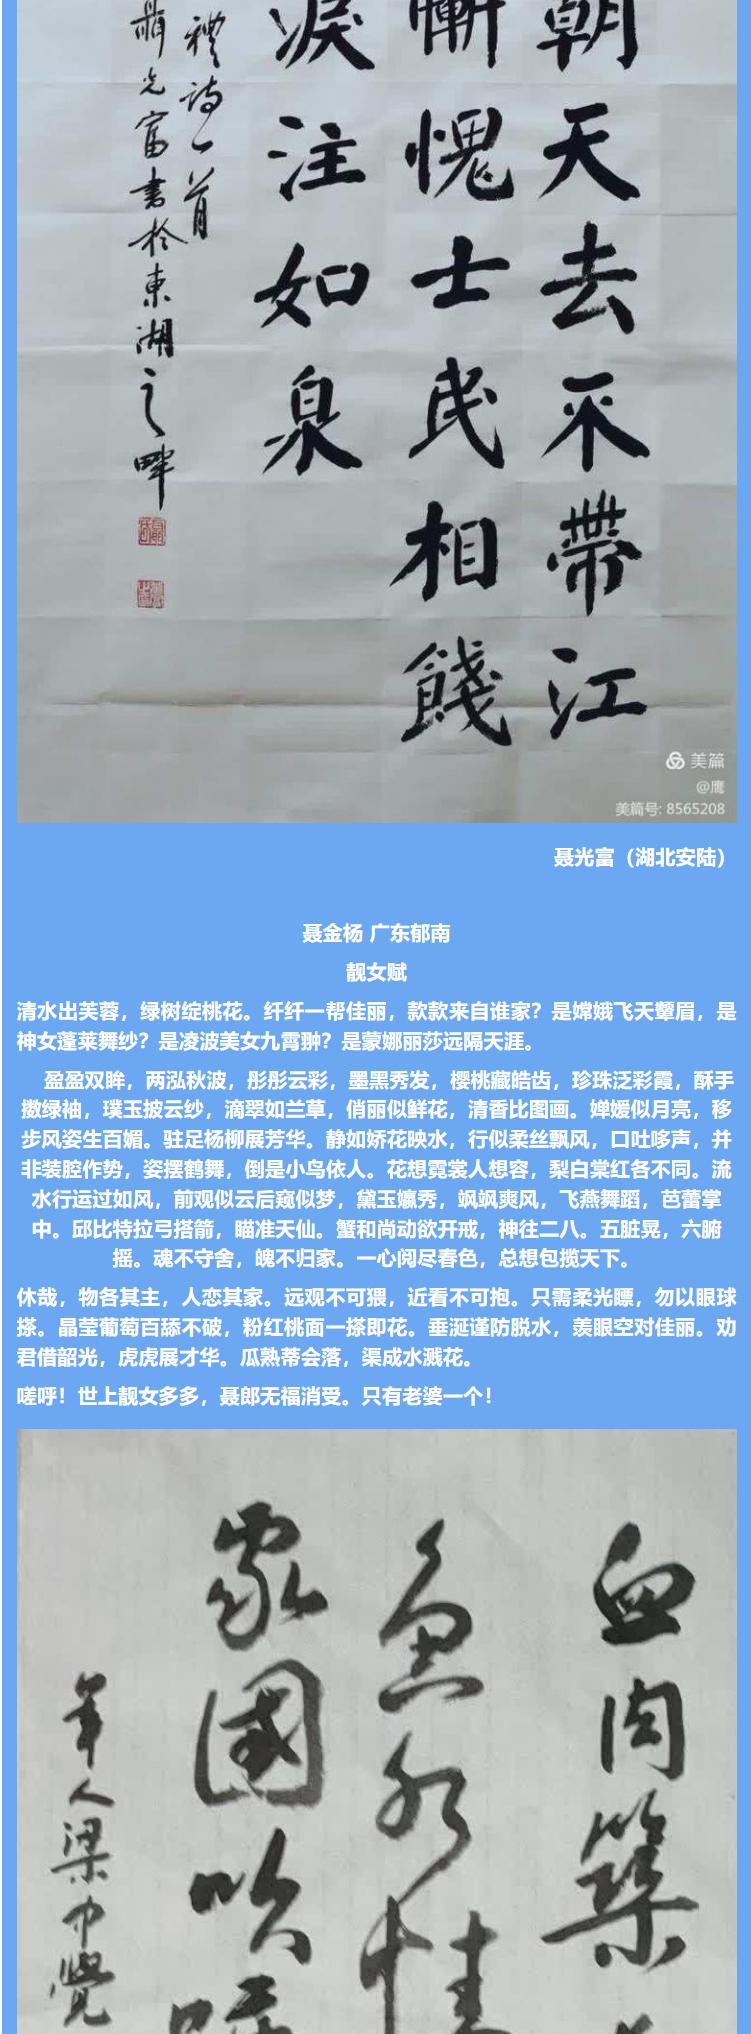 朝天去不带江
慚愧士民相餞
淚注如泉
禮詩一首
聶光富書於東湖之畔
美篇
@鹰
美篇号: 8565208
聂光富（湖北安陆）
聂金杨 广东郁南
靓女赋
清水出芙蓉，绿树绽桃花。纤纤一帮佳丽，款款来自谁家？是嫦娥飞天颦眉，是
神女蓬莱舞纱？是凌波美女九霄翀？是蒙娜丽莎远隔天涯。
盈盈双眸，两泓秋波，彤彤云彩，墨黑秀发，樱桃藏皓齿，珍珠泛彩霞，酥手
擞绿袖，璞玉披云纱，滴翠如兰草，俏丽似鲜花，清香比图画。婵媛似月亮，移
步风姿生百媚。驻足杨柳展芳华。静如娇花映水，行似柔丝飘风，口吐哆声，并
非装腔作势，姿摆鹤舞，倒是小鸟依人。花想霓裳人想容，梨白棠红各不同。流
水行运过如风，前观似云后窥似梦，黛玉孃秀，飒飒爽风，飞燕舞蹈，芭蕾掌
中。邱比特拉弓搭箭，瞄准天仙。蟹和尚动欲开戒，神往二八。五脏晃，六腑
摇。魂不守舍，魄不归家。一心阅尽春色，总想包揽天下。
休哉，物各其主，人恋其家。远观不可猥，近看不可抱。只需柔光瞟，勿以眼球
搽。晶莹葡萄百舔不破，粉红桃面一搽即花。垂涎谨防脱水，羡眼空对佳丽。劝
君借韶光，虎虎展才华。瓜熟蒂会落，渠成水溅花。
嗟呼！世上靓女多多，聂郎无福消受。只有老婆一个！
血肉築
魚水情
家國
年人梁中覺